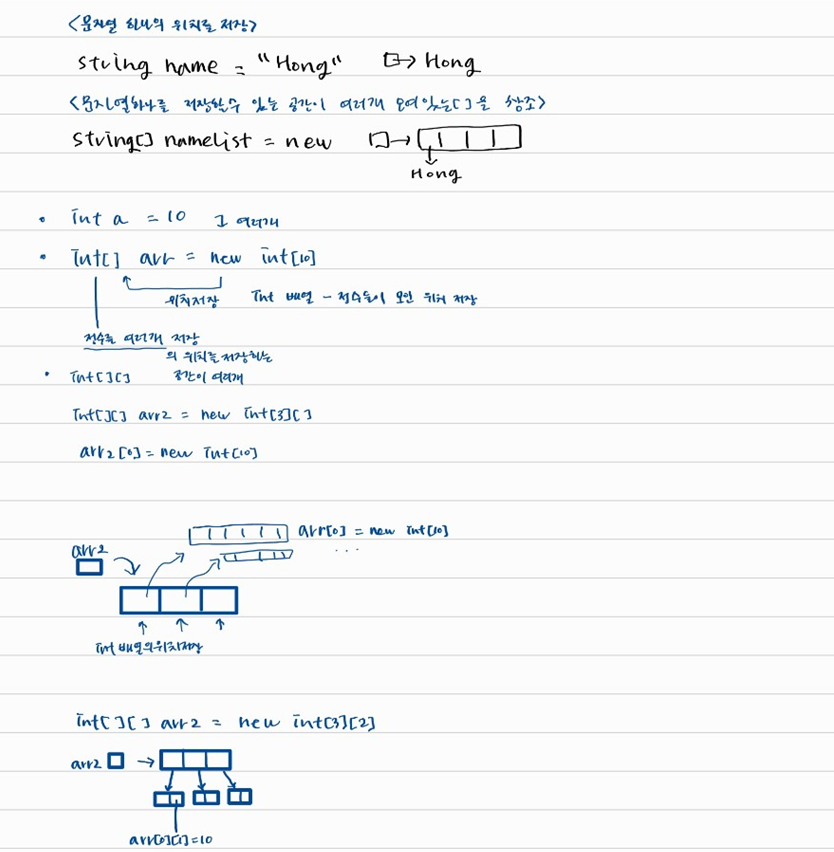 <문자열 하나의 위치를 저장>
string name = "Hong" → Hong
<문자열하나를 저장할수 있는 공간이 여러개 모여있는[]을 참조>
string[] namelist = new →
Hong
• int a = 10 그 여러개
• int[] arr = new int[10]
위치저장 int 배열 - 정수들이 모인 위치 저장
정수를 여러개 저장
의 위치를 저장하는
• int[][] 공간이 여러개
int[][] arr2 = new int[3][]
arr2[0] = new int[10]
arr[0] = new int[10]
arr2 ...
int 배열의위치저장
int[][] arr2 = new int[3][2]
arr2 →
arr[0][1]=10